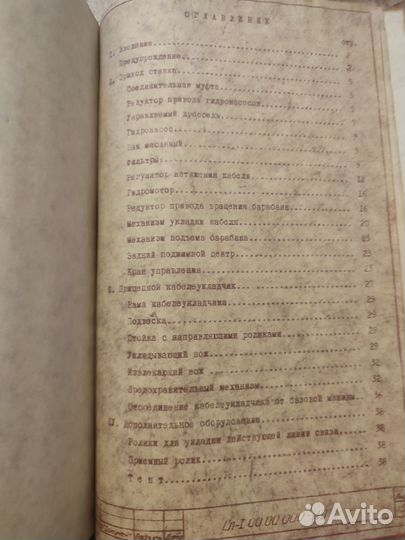 ОГЛАВЛЕНИЕ
Стр.
I. Введение
Предупреждение 2
Привод станка
Соединительная муфта
Редуктор привода гидронасосов
Управляемый дроссель
Гидронасос
Бак масляный
Фильтры 9
Регулятор натяжения кабеля 12
Гидромотор 16
Редуктор привода вращения барабана 16
Механизм укладки кабеля 20
Механизм подъема барабана 23
Задний поджимной центр 23
Кран управления 25
Прицепной кабелеукладчик 27
Рама кабелеукладчика 29
Подвеска 29
Стойка с направляющими роликами 29
Укладывающий нож 29
Извлекающий нож 32
Предохранительный механизм 32
Отсоединение кабелеукладчика от базовой машины 36
IV. Дополнительное оборудование 38
Ролики для укладки действующей линии связи 38
Приемный ролик 38
Тент 38
Avito